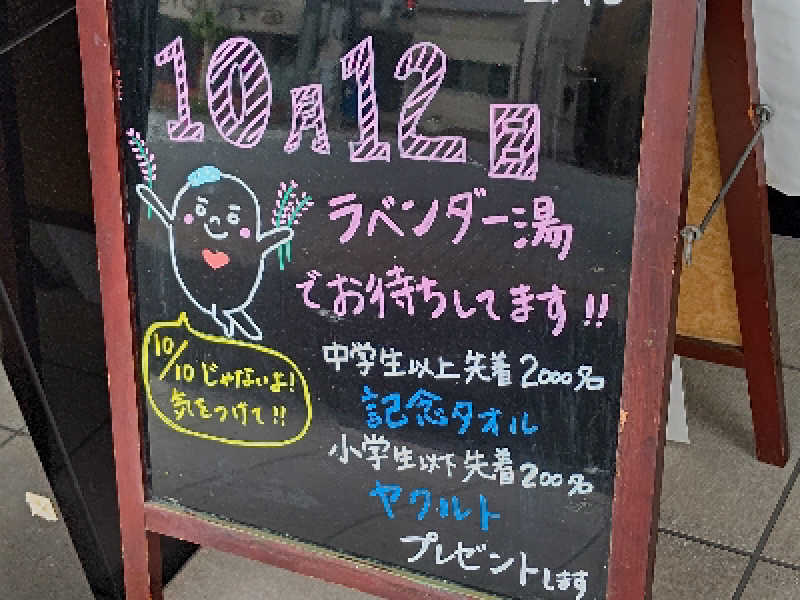 10月12日
ラベンダー湯
でお待ちしてます!!
10/10じゃないよ!
気をつけて!!
中学生以上先着2000名
記念タオル
小学生以下先着200名
ヤクルト
プレゼントします